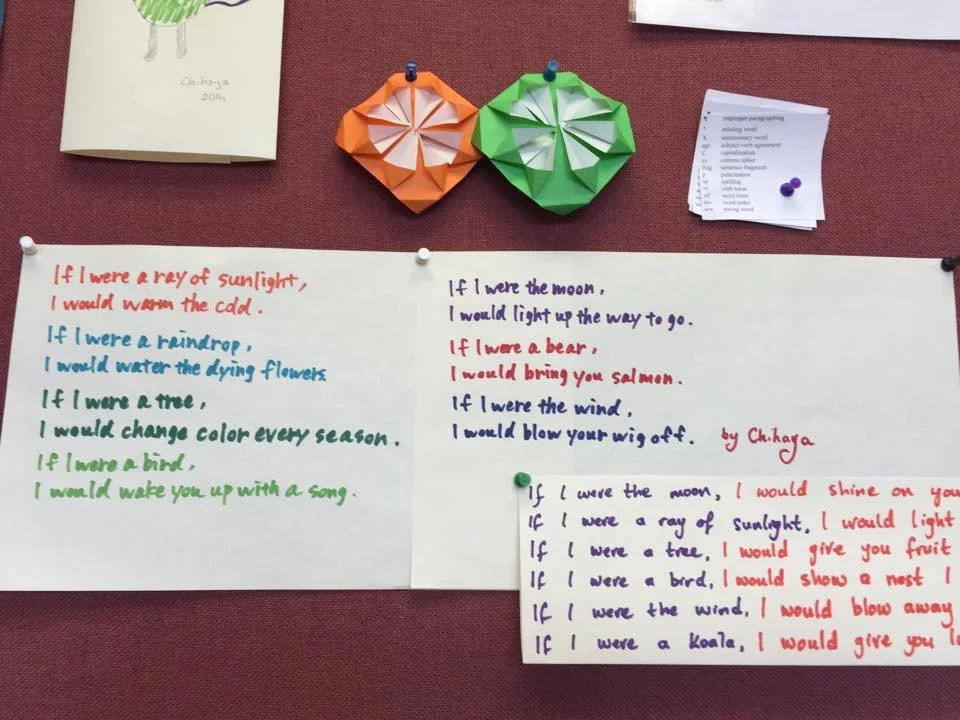 Chihaya
2014
¶ improper paragraphing
^ missing word
X unnecessary word
agr subject-verb agreement
C capitalization
cs comma splice
frag sentence fragment
P punctuation
sp spelling
verb tense
wf word form
wo word order
ww wrong word
If I were a ray of sunlight,
I would warm the cold.
If I were a raindrop,
I would water the dying flowers.
If I were a tree,
I would change color every season.
If I were a bird,
I would wake you up with a song.
If I were the moon,
I would light up the way to go.
If I were a bear,
I would bring you salmon.
If I were the wind,
I would blow your wig off. by Chihaya
If I were the moon, I would shine on you
If I were a ray of sunlight, I would light
If I were a tree, I would give you fruit
If I were a bird, I would show a nest I
If I were the wind, I would blow away
If I were a Koala, I would give you